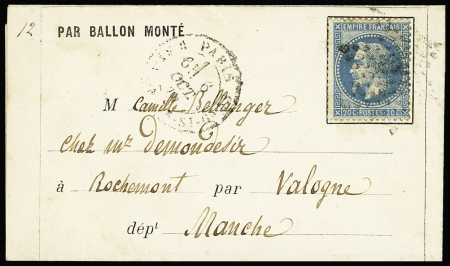 12
PAR BALLON MONTÉ
EMPIRE FRANÇAIS
20C POSTES 20C
PARIS
OCT
M Camille Bellanger
chez mr demondesir
à Rochemont par Valogne
dépt Manche